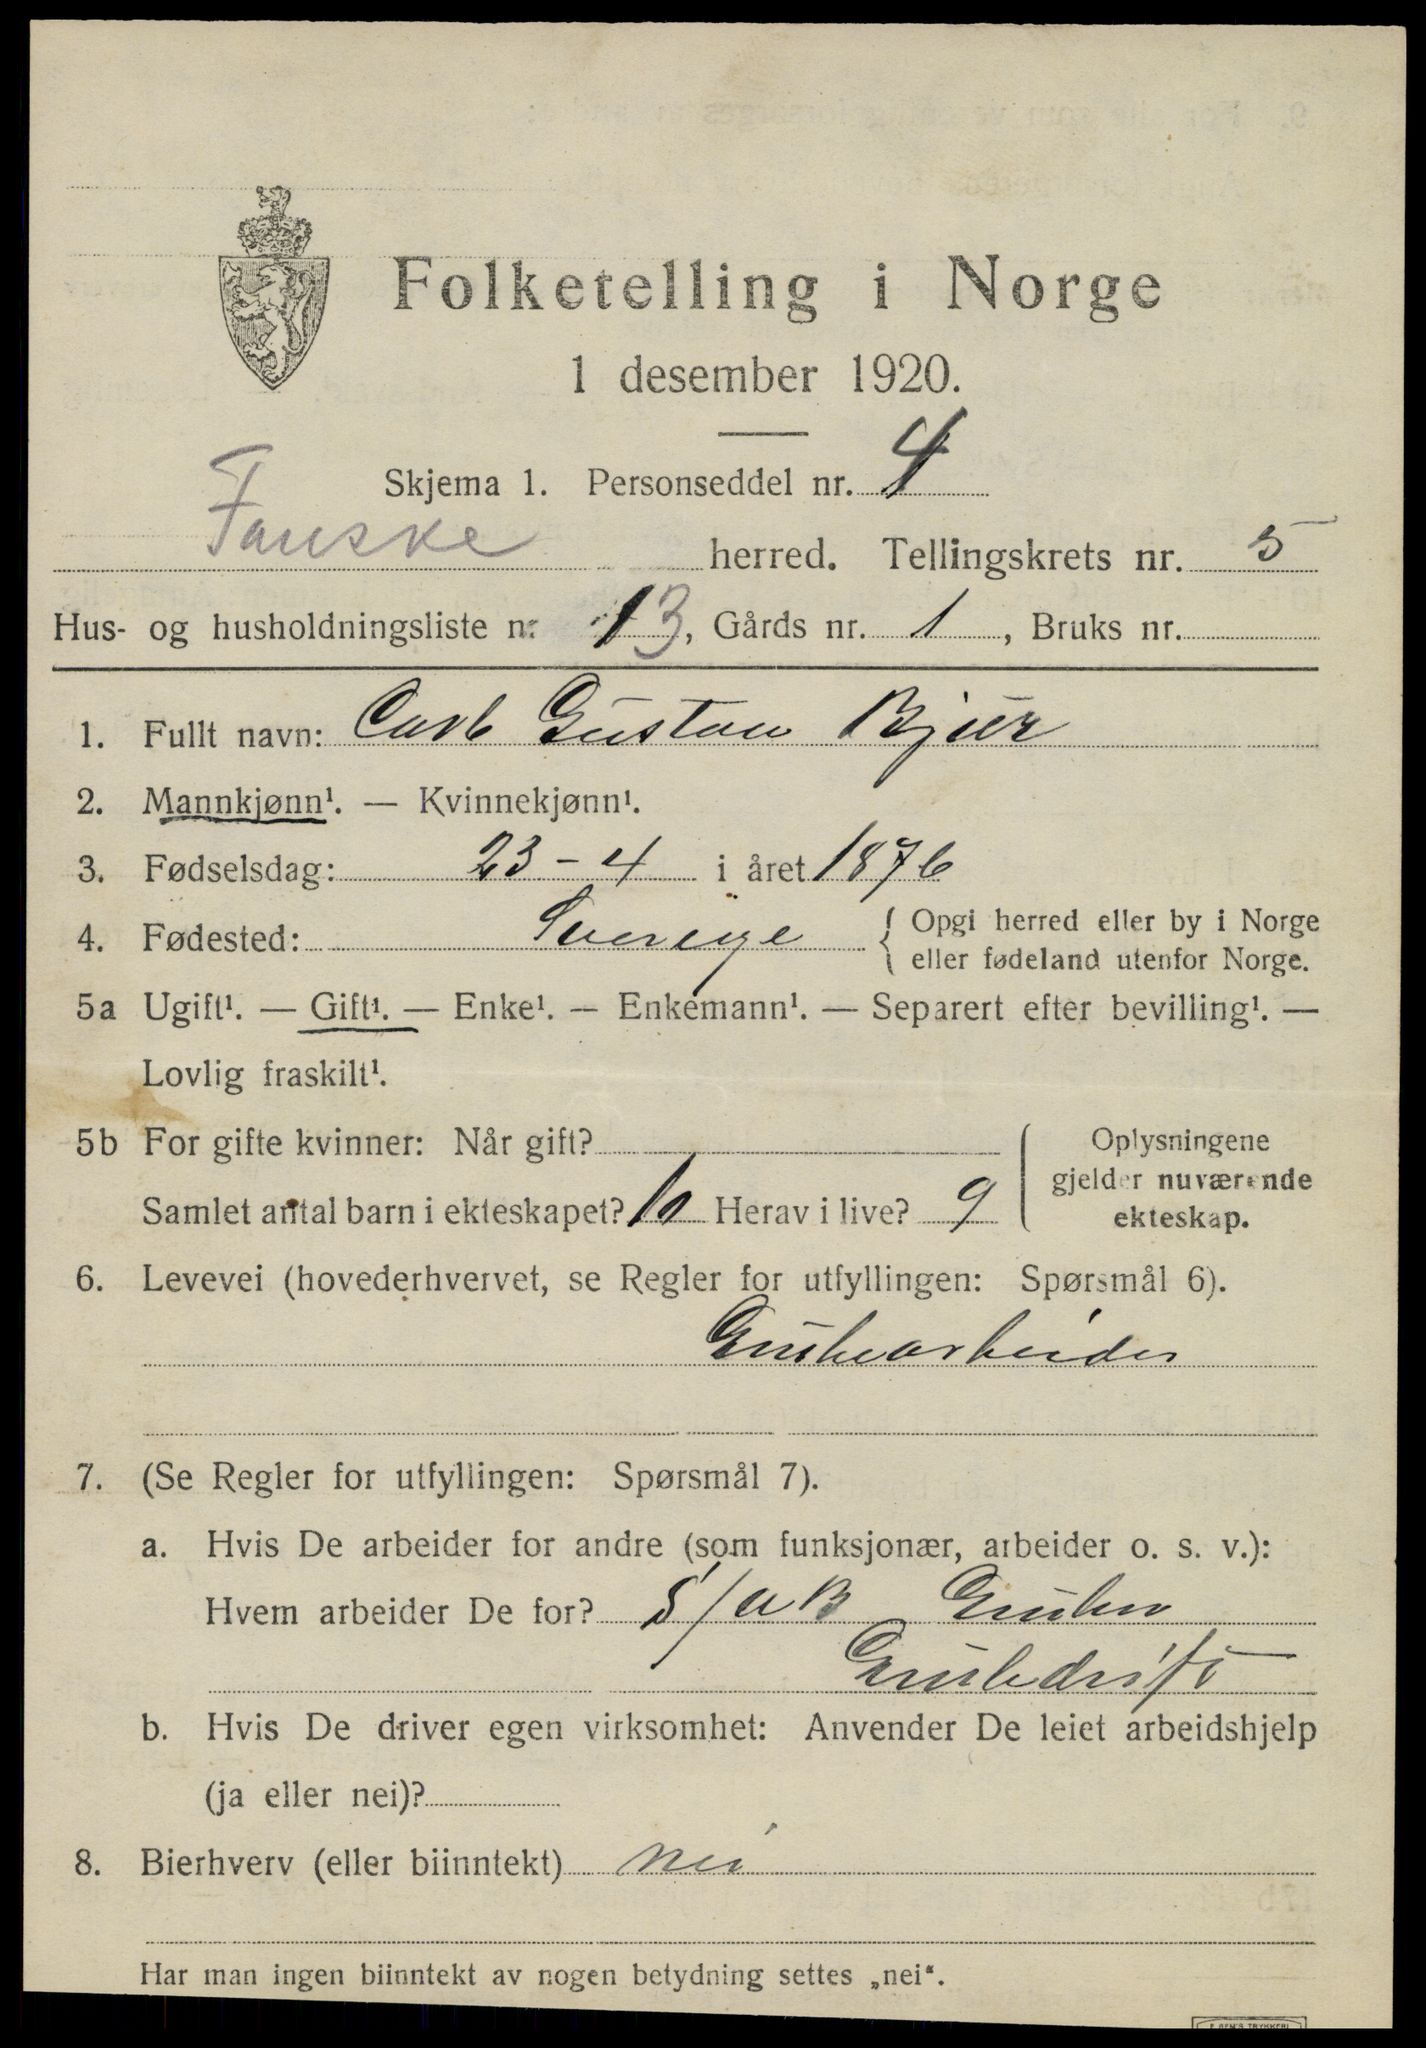 Folketelling i Norge
1 desember 1920.
Skjema 1. Personseddel nr. 4
Fauske herred. Tellingskrets nr. 5
Hus- og husholdningsliste nr 13, Gårds nr. 1, Bruks nr.
1. Fullt navn: Carl Gustav Bjur
2. Mannkjønn¹. — Kvinnekjønn¹.
3. Fødselsdag: 23 - 4 i året 1876
4. Fødested: Sverige { Opgi herred eller by i Norge
eller fødeland utenfor Norge.
5a Ugift¹. — Gift¹. — Enke¹. — Enkemann¹. — Separert efter bevilling¹. —
Lovlig fraskilt¹.
5b For gifte kvinner: Når gift? Oplysningene
gjelder nuværende
Samlet antal barn i ekteskapet? 10 Herav i live? 9 ekteskap.
6. Levevei (hovederhvervet, se Regler for utfyllingen: Spørsmål 6).
Grubearbeider
7. (Se Regler for utfyllingen: Spørsmål 7).
a. Hvis De arbeider for andre (som funksjonær, arbeider o. s. v.):
Hvem arbeider De for? S/AB Gruber
Grubedrift
b. Hvis De driver egen virksomhet: Anvender De leiet arbeidshjelp
(ja eller nei)?
8. Bierhverv (eller biinntekt) nei
Har man ingen biinntekt av nogen betydning settes „nei“.